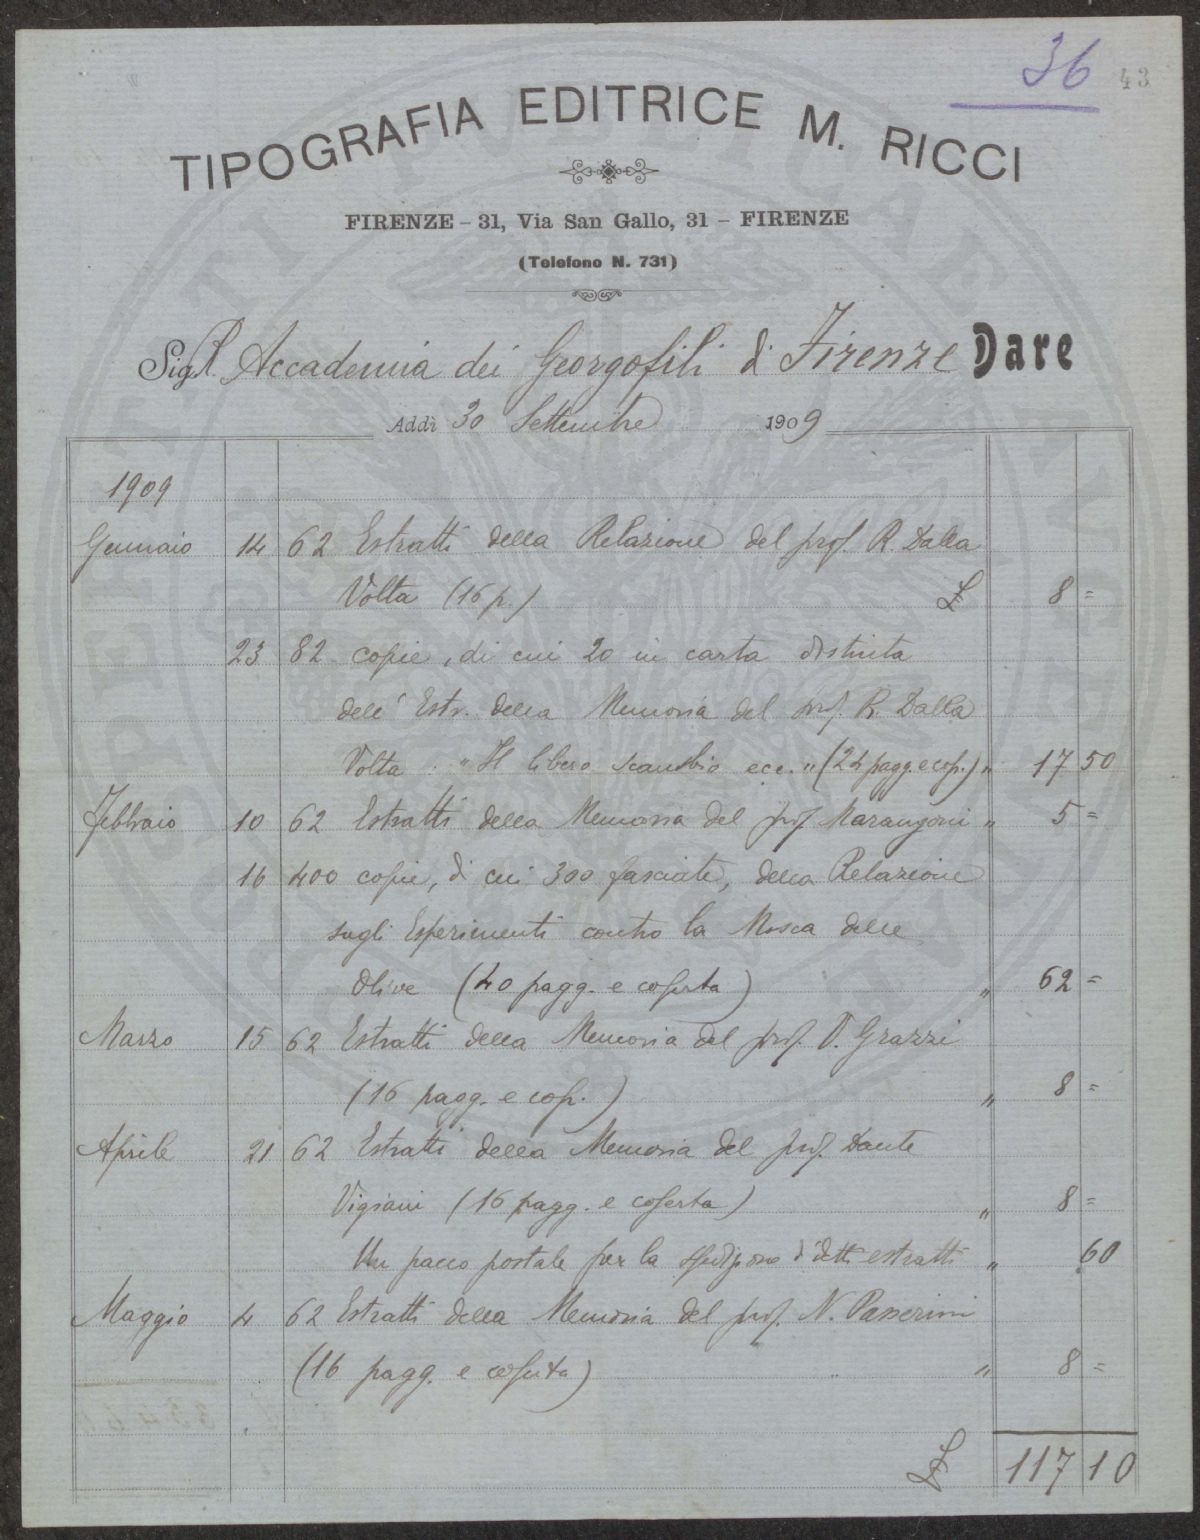 36
43
TIPOGRAFIA EDITRICE M. RICCI
FIRENZE – 31, Via San Gallo, 31 – FIRENZE
(Telefono N. 731)
Sig. R. Accademia dei Georgofili di Firenze Dare
Addì 30 Settembre 1909
1909
Gennaio 14 62 Estratti della Relazione del prof. R. Dalla
Volta (16 p.) £ 8 =
23 82 copie, di cui 20 in carta distinta
dell' Estr. della Memoria del prof. R. Dalla
Volta "Il libero scambio ecc." (24 pagg. e cop.) " 17 50
Febbraio 10 62 Estratti della Memoria del prof. Marangoni " 5 =
16 400 copie, di cui 300 fasciate, della Relazione
sugli Esperimenti contro la Mosca delle
Olive (40 pagg. e coperta) " 62 =
Marzo 15 62 Estratti della Memoria del prof. V. Grazzi
(16 pagg. e cop.) " 8 =
Aprile 21 62 Estratti della Memoria del prof. Dante
Vigiani (16 pagg. e coperta) " 8 =
Un pacco postale per la spedizione di detti estratti " 60
Maggio 4 62 Estratti della Memoria del prof. N. Passerini
(16 pagg. e coperta) " 8 =
£ 117 10